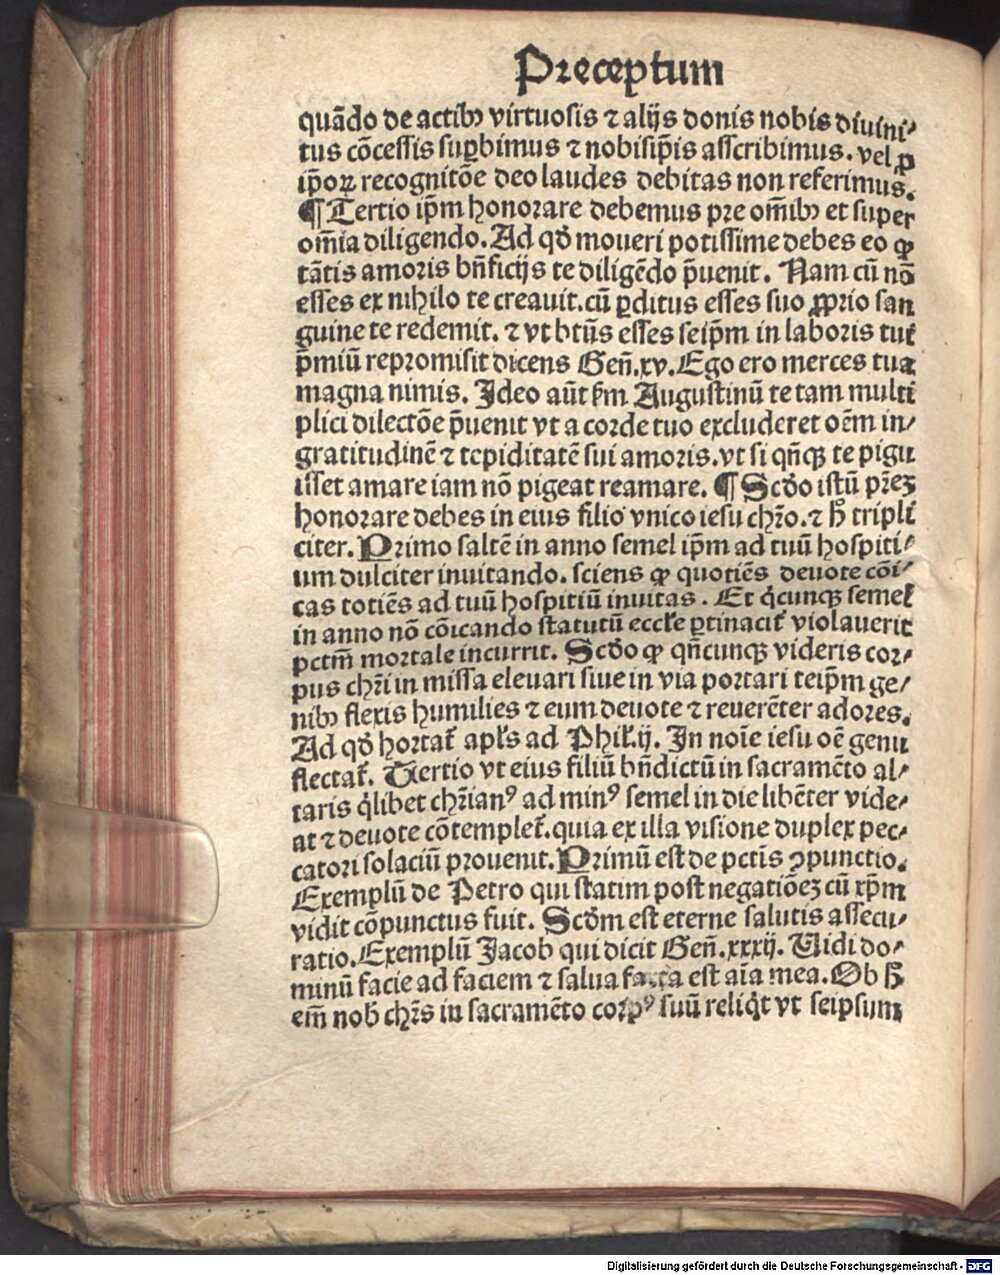 Preceptum
quãdo de actibꝰ virtuosis ⁊ alijs donis nobis diuini⸗
tus cõcessis suꝑbimus ⁊ nobisip̃is asscribimus. vel ꝓ
ip̃oꝝ recognitõe deo laudes debitas non referimus.
¶ Tertio ip̃m honorare debemus pre om̃ibꝰ et super
om̃ia diligendo. Ad qđ moueri potissime debes eo ꝙ
tãtis amoris bñficijs te diligẽdo p̃uenit. Nam cũ nõ
esses ex nihilo te creauit. cũ ꝑditus esses suo ꝓprio san
guine te redemit. ⁊ vt btũs esses seip̃m in laboris tui
p̃miũ repromisit dicens Geñ. xv. Ego ero merces tua
magna nimis. Ideo aũt ẜm Augustinũ te tam multi
plici dilectõe p̃uenit vt a corde tuo excluderet oẽm in⸗
gratitudinẽ ⁊ tepiditatẽ sui amoris. vt si qñqꝫ te pigu
isset amare iam nõ pigeat reamare. ¶ Scđo istũ pr̃eꝫ
honorare debes in eius filio vnico iesu chr̃o. ⁊ ħ tripli
citer. Primo saltẽ in anno semel ip̃m ad tuũ hospiti⸗
um dulciter inuitando. sciens ꝙ quotiẽs deuote cõi⸗
cas totiẽs ad tuũ hospitiũ inuitas. Et q̃cunqꝫ semel
in anno nõ cõicando statutũ eccłe ꝑtinacit̃ violauerit
pctm̃ mortale incurrit. Scđo ꝙ qñcunqꝫ videris cor⸗
pus chr̃i in missa eleuari siue in via portari teip̃m ge⸗
nibꝰ flexis humilies ⁊ eum deuote ⁊ reuerẽter adores.
Ad qđ hortat̃ apl̃s ad Phil̃. ij. In noĩe iesu oẽ genu
flectat̃. Tertio vt eius filiũ bñdictũ in sacramẽto al⸗
taris q̃libet chr̃ianꝰ ad minꝰ semel in die libẽter vide⸗
at ⁊ deuote cõtemplet̃. quia ex illa visione duplex pec⸗
catori solaciũ prouenit. Primũ est de pctĩs ꝯpunctio.
Exemplũ de Petro qui statim post negatiõeꝫ cũ xp̃m
vidit cõpunctus fuit. Scđm est eterne salutis assecu⸗
ratio. Exemplũ Jacob qui dicit Geñ. xxxij. Vidi do⸗
minũ facie ad faciem ⁊ salua facta est aĩa mea. Ob ħ
em̃ nob̃ chr̃s in sacramẽto corpꝰ suũ reliq̃t vt seipsum
Digitalisierung gefördert durch die Deutsche Forschungsgemeinschaft - DFG